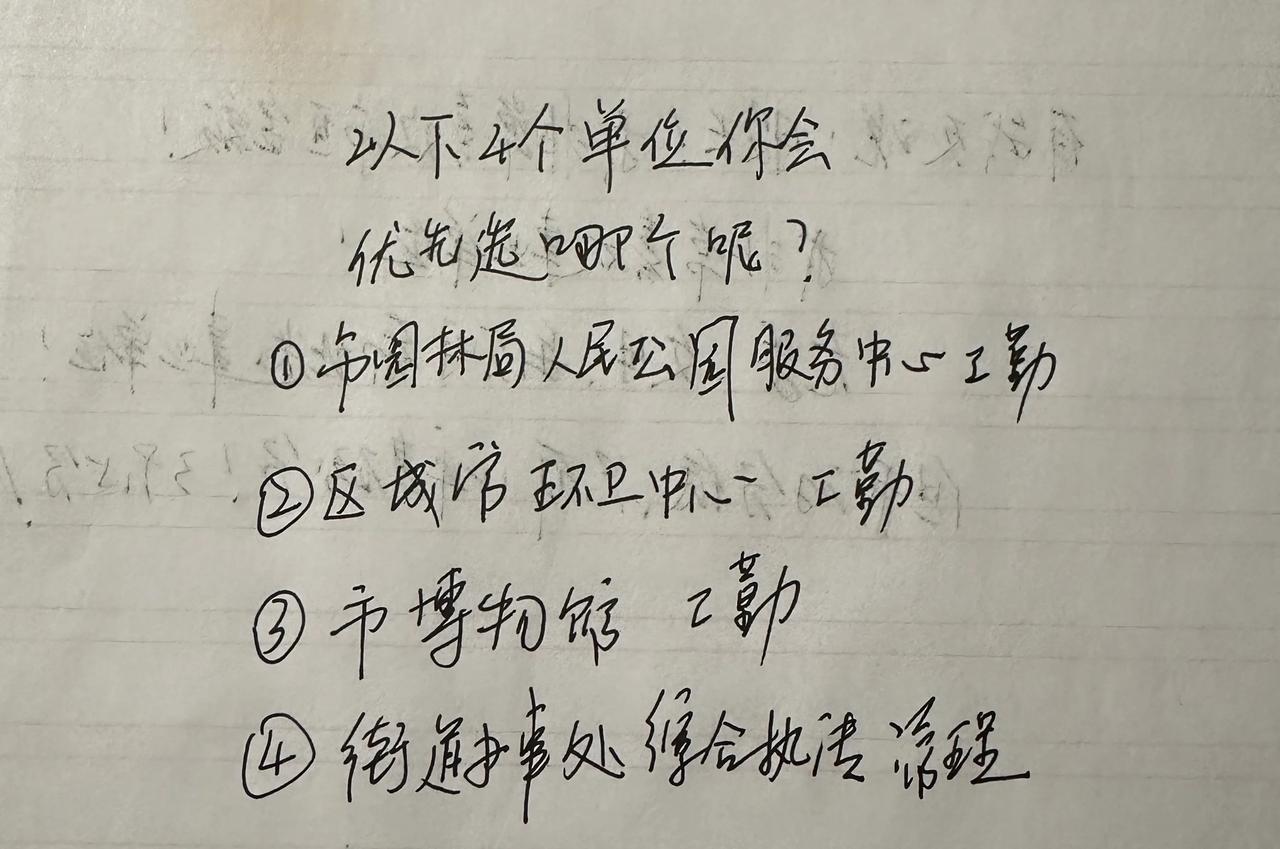 以下4个单位你会
优先选哪个呢?
①市园林局人民公园服务中心工勤
②区城管环卫中心工勤
③市博物馆 工勤
④街道办事处综合执法管理